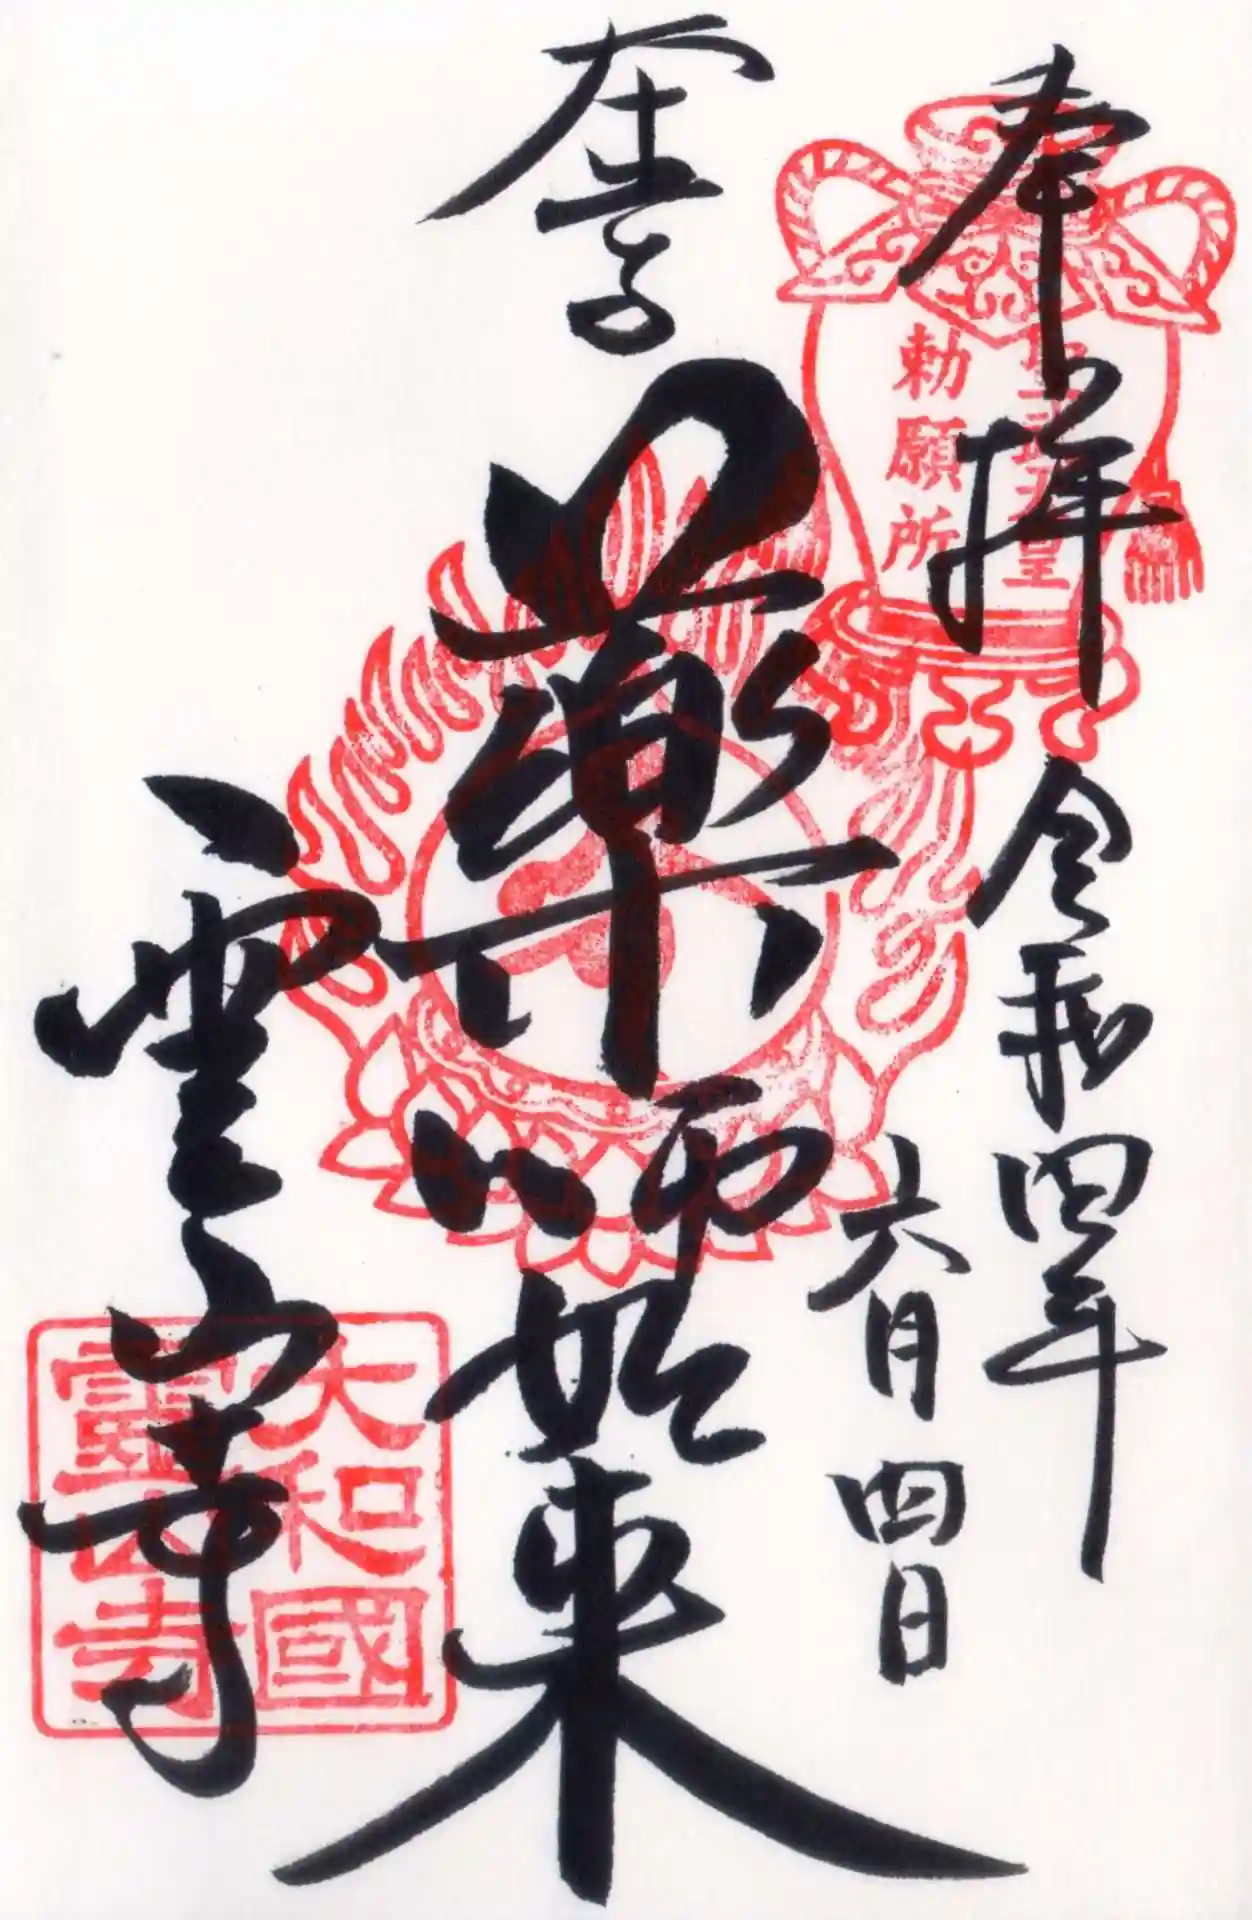 奉拝
聖武天皇
勅願所
令和四年
六月四日
藥師如来
霊山寺
大和國
靈山寺